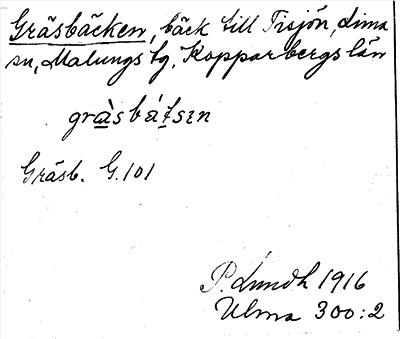 Gräsbäcken, bäck till Tisjön, Lima
sn, Malungs tg, Kopparbergs län
Gräsb. G.101
P. Lundh 1916
Ulma 300:2